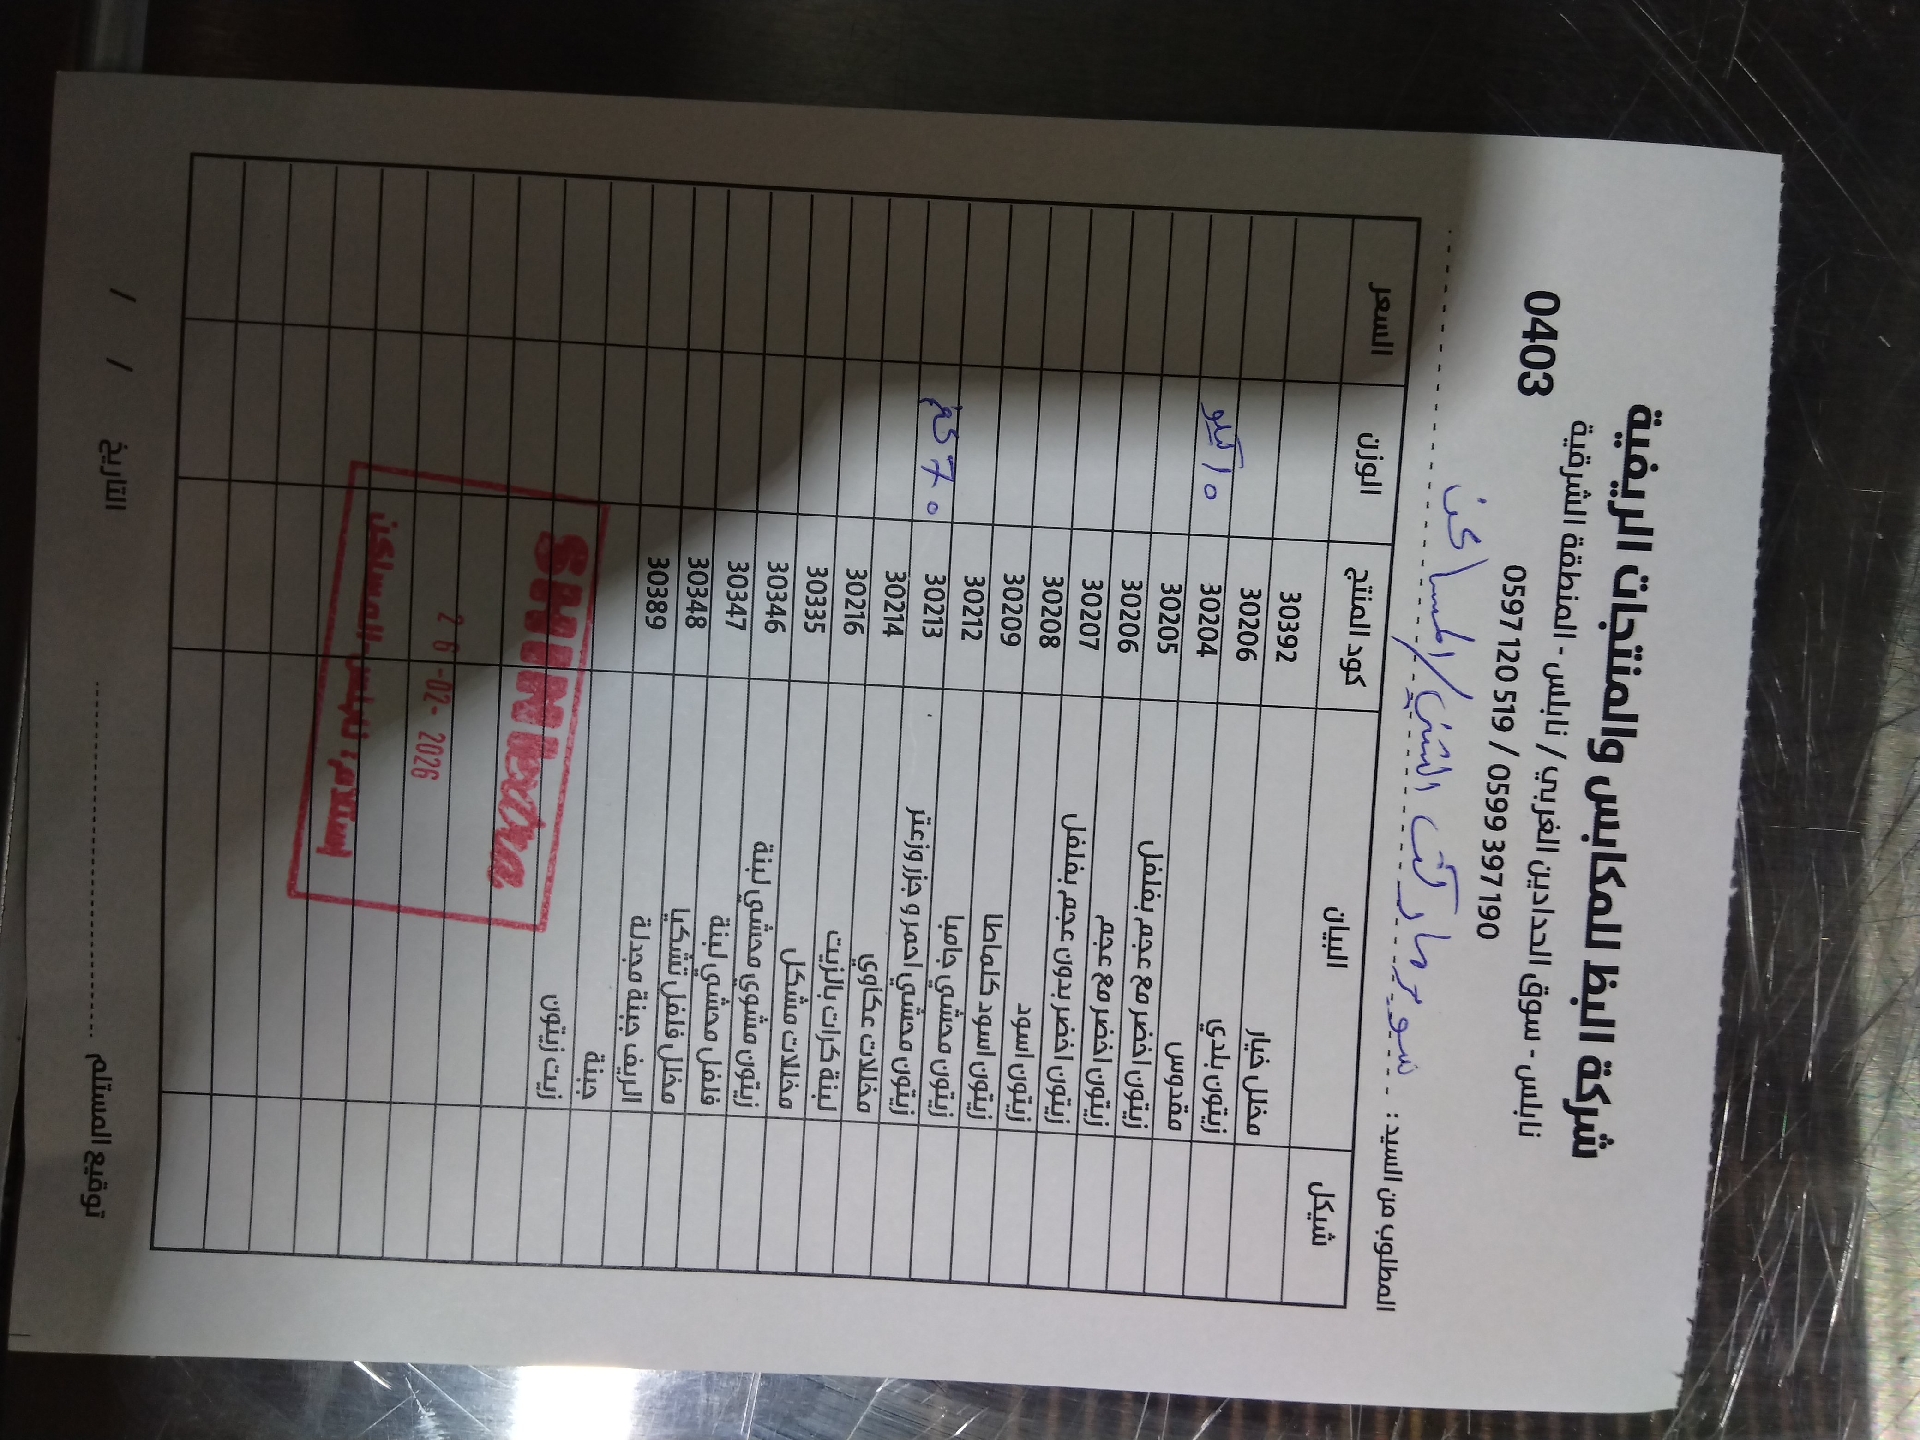 شركة البظ للمكابس والمنتجات الريفية
نابلس - سوق الحدادين الغربي / نابلس - المنطقة الشرقية
0597 120 519 / 0599 397 190
0403
المطلوب من السيد : سوبر ماركت الشني / المساكن
شيكل البيان كود المنتج الوزن السعر
مخلل خيار 30392
زيتون بلدي 30206
مقدوس 30204 10 كيلو
زيتون اخضر مع عجم بفلفل 30205
زيتون اخضر مع عجم 30206
زيتون اخضر بدون عجم بفلفل 30207
زيتون اسود 30208
زيتون اسود كلماطا 30209
زيتون محشي جامبا 30212
زيتون محشي احمر و جزر وزعتر 30213 70 كغ
مخللات عكاوي 30214
لبنة كرات بالزيت 30216
مخللات مشكل 30335
زيتون مشوي محشي لبنة 30346
فلفل محشي لبنة 30347
مخلل فلفل تشكيا 30348
الريف جبنة مجدلة 30389
جبنة
زيت زيتون
SHINI
26-02-2026
إستلام نابلس المساكن
توقيع المستلم التاريخ / /